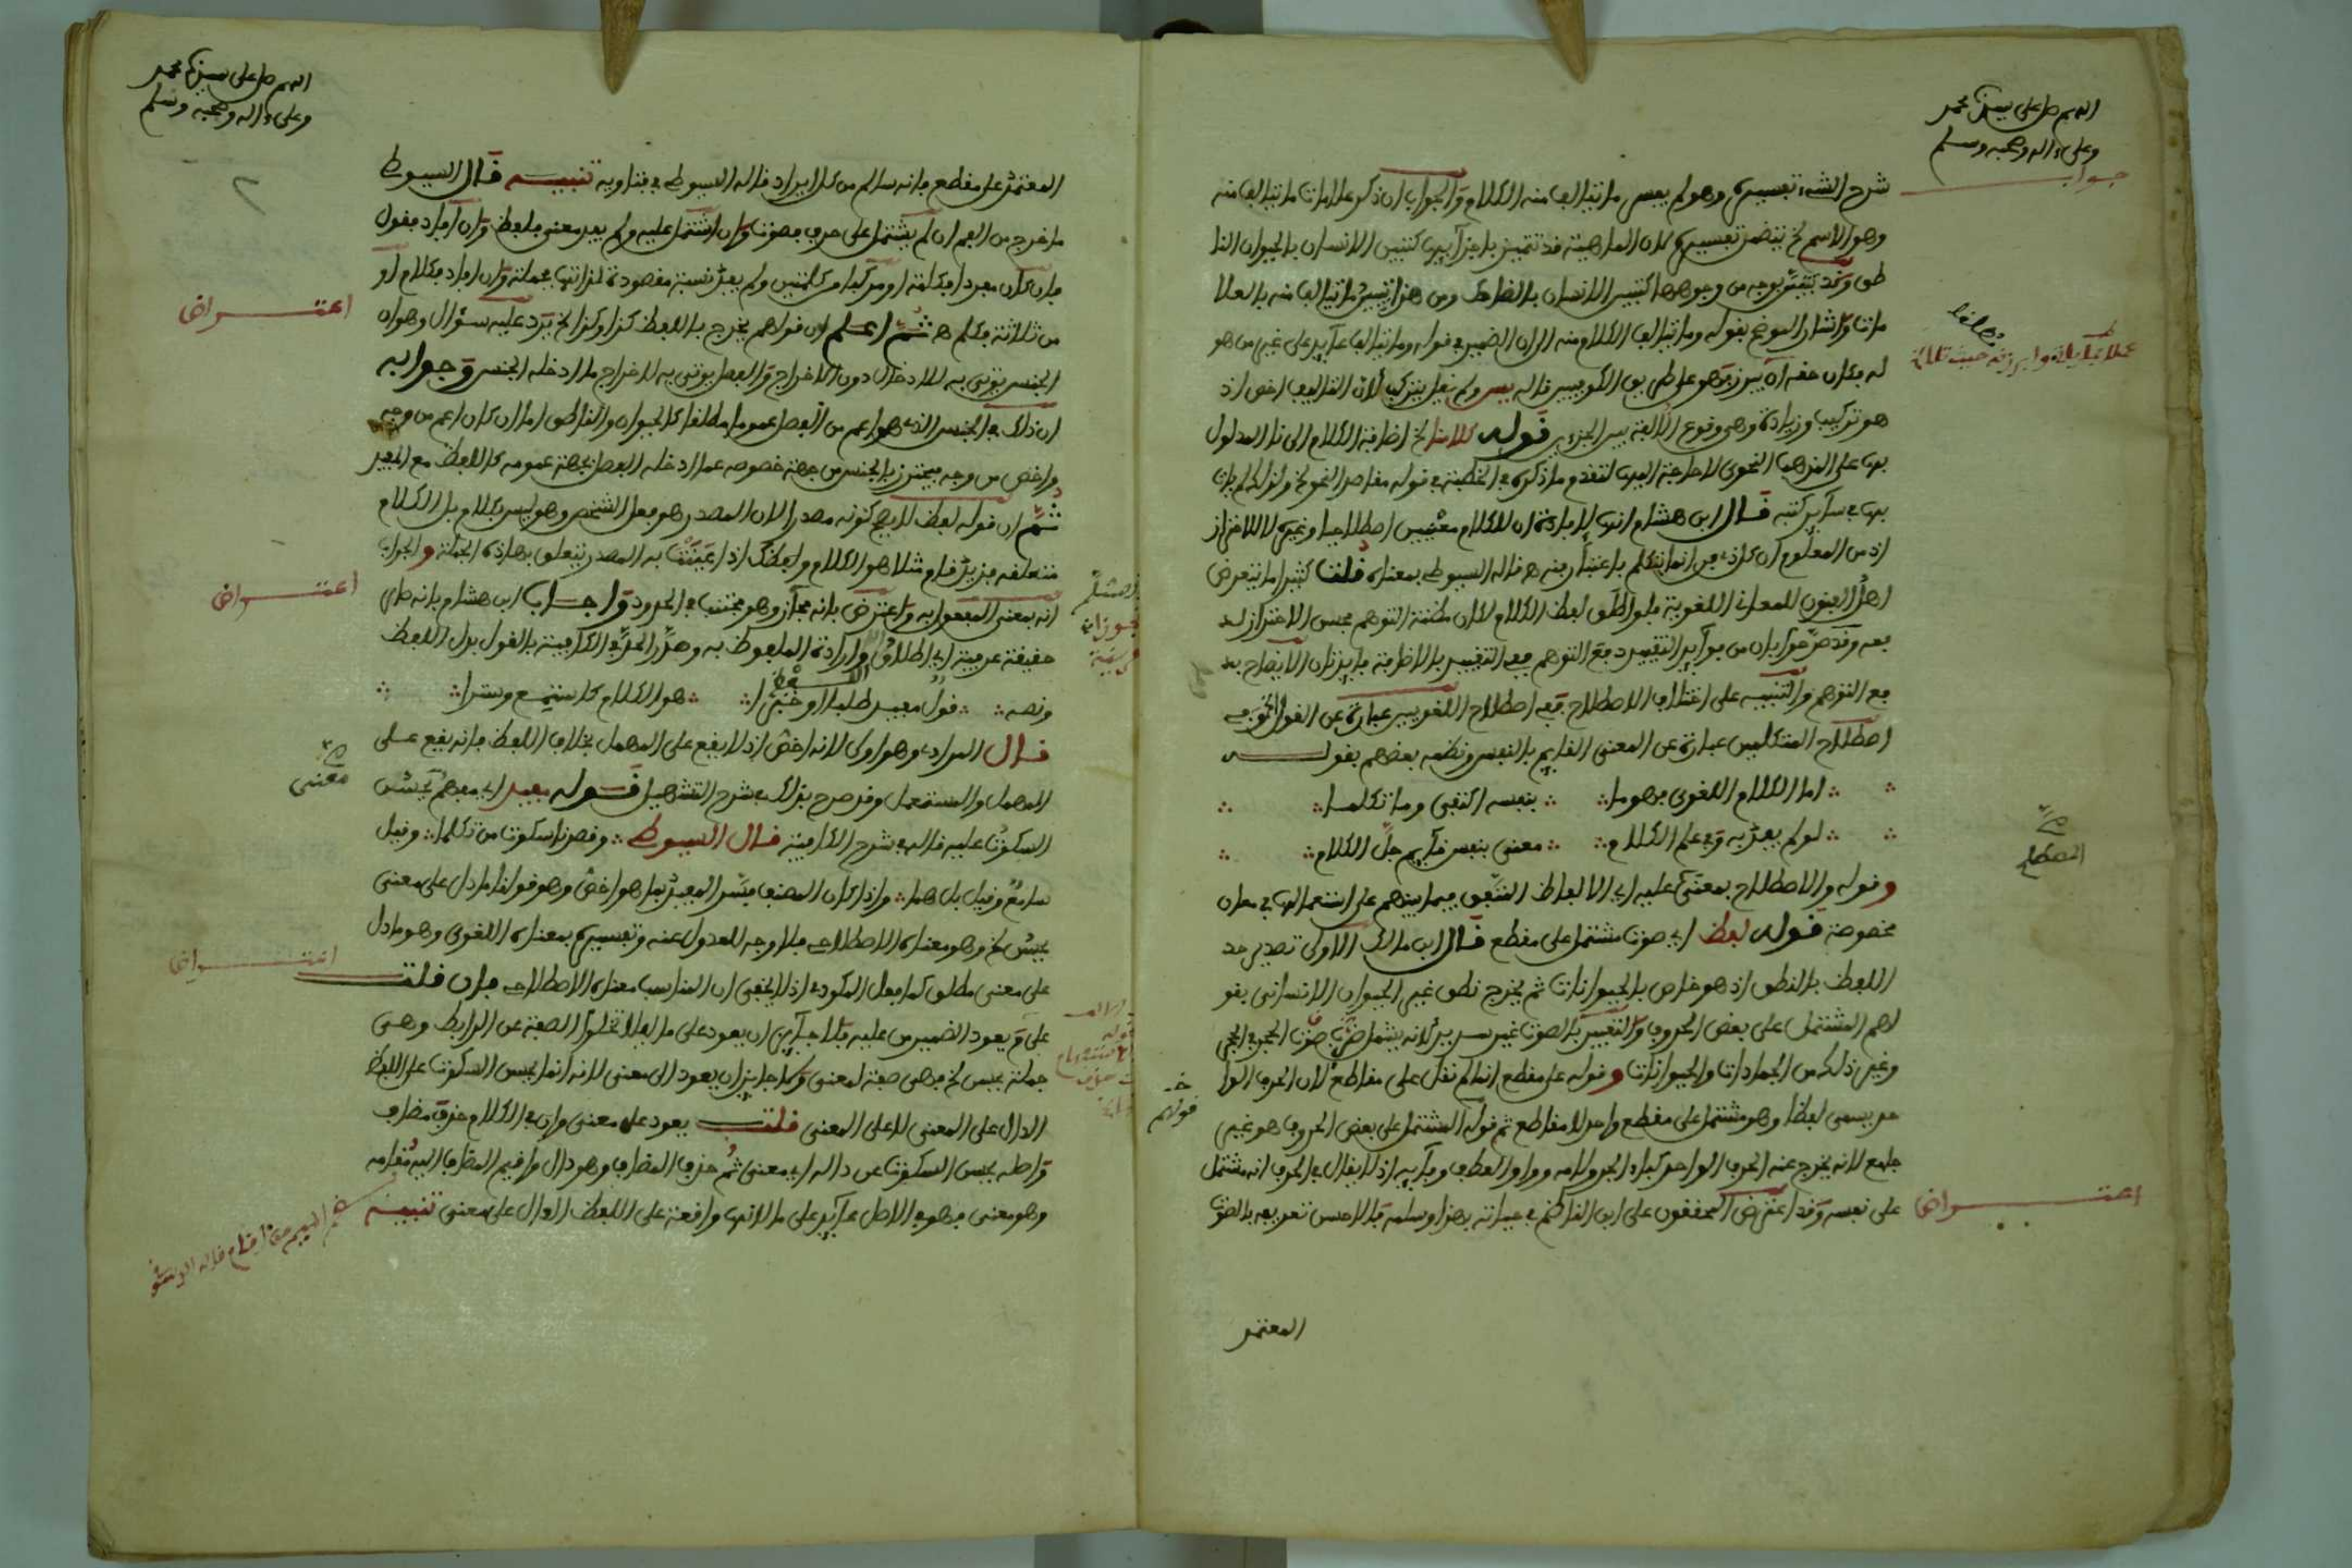 اللهم صل على سيدنا محمد
وعلى ءاله وصحبه وسلم
جواب
شرح الشيء تفسيره وهو لم يفسر ما يتالف منه الكلام والجواب ان ذكر علامات ما يتالف منه
وهو الاسم الخ يتضمن تفسيره لان الماهية قد تتميز باجزآيها كتبيين الانسان بالحيوان النا
طق وقد تبين بوجه من وجوهها كتبيين الانسان بالضاحك ومن هذا تبيين ما يتالف منه بالعلا
مات واشار الموضح بقوله وما يتالف الكلام منه الى ان الضمير في قوله وما يتالف عآيد على غير من هو
له فكان حقه ان يبرزه وهو على طريق الكوفيين قاله يس ولم يقل يتركب لان التاليف اخص اذ
هو تركيب وزيادة وهي وقوع الالفة بين الجزءين قوله كلامنا الخ اضافة الكلام الى نا المدلول
بها على المذهب النحوي لا حاجة اليها لتقدم ما ذكره في الخطبة في قوله مقاصد النحو الخ ولذلك لم يات
بها في سآير كتبه قال ابن هشام انها لإفادة ان للكلام معنيين اصطلاحيا وغيره لا للاحتراز
اذ من المعلوم ان كل ذي فن انما يتكلم باعتبار فنه ه قاله السيوطي بمعناه قلت كثيرا ما يتعرض
اهل الفنون للمعاني اللغوية فلو اطلق لفظ الكلام لكان مظنة التوهم فحسن الاحتراز لد
فعه وقد صرحوا بان من فوآيد التقييد دفع التوهم ففي التقييد بالاضافة فآيدتان الايضاح بد
فع التوهم والتنبيه على اختلاف الاصطلاح ففي اصطلاح اللغويين عبارة عن القول وفي
اصطلاح المتكلمين عبارة عن المعنى القآيم بالنفس ونظمه بعضهم بقوله
اما الكلام اللغوي فهو ما بنفسه اكتفى وما تكلما
لو لم يفد به وفي علم الكلام معنى بنفس قآيم جل الكلام
وقوله والاصطلاح بمعنى عليه اي الالفاظ المتفق فيما بينهم على استعمالها في معان
مخصوصة قوله لفظ اي صوت مشتمل على مقطع قال ابن مالك الاولى تصدير حد
اللفظ بالنطق اذ هو خاص بالحيوانات ثم يخرج نطق غير الحيوان الانساني بقو
لهم المشتمل على بعض الحروف والتعبير بالصوت غير سديد لانه يشمل صوت الحجر في الحجر
وغير ذلك من الجمادات والحيوانات وقوله على مقطع انما لم نقل على مقاطع لان الحرف الوا
حد يسمى لفظا وهو مشتمل على مقطع واحد لا مقاطع ثم قوله المشتمل على بعض الحروف هو غير
جامع لانه يخرج عنه الحرف الواحد كباء الجر ولامه وواو العطف وفآيه اذ لا يقال في الحرف انه مشتمل
على نفسه وقد اعترض المحققون على ابن الناظم في عبارته بهذا وسلمه فالاحسن تعريفه بالصوت
اعتراض
المعتمد
اللهم صل على سيدنا محمد
وعلى ءاله وصحبه وسلم
٢
المعتمد على مقطع فانه سالم من كل ايراد قاله السيوطي في فتاويه تنبيه قال السيوطي
ما خرج من الفم ان لم يشتمل على حرف فصوت وان اشتمل عليه ولم يفد معنى فلفظ وان افاد فقول
فان كان مفردا فكلمة او مركبا من كلمتين ولم يفد نسبة مقصودة لذاتها فجملة وان افاد فكلام او
من ثلاثة فكلم ه ثم اعلم ان قولهم يخرج باللفظ كذا وكذا الخ يرد عليه سؤال وهو ان
الجنس يؤتى به للادخال دون الاخراج والفصل يؤتى به لاخراج ما ادخله الجنس وجوابه
ان ذلك في الجنس الذي هو اعم من الفصل عموما مطلقا كالحيوان والناطق اما ان كان اعم من وجه
واخص من وجه فيحترز بالجنس من جهة خصوصه عما ادخله الفصل بجهة عمومه كاللفظ مع المفيد
ثم ان قوله لفظ لا يصح كونه مصدرا لان المصدر هو فعل الشخص وهو ليس بكلام بل الكلام
متعلقه فزيد قام مثلا هو الكلام ولفظك اذا عنيت به المصدر يتعلق بهاذه الجملة والجواب
انه بمعنى المفعول به واعترض بانه مجآز وهو مجتنب في الحدود واجاب ابن هشام بانه صار
حقيقة عرفية اي اطلاق اللفظ وارادة الملفوظ به وحد الحد في الكافية بالقول بدل اللفظ
ونصه قول مفيد طلبا او خبرا هو الكلام كاستمع وسترى
قال المرادي وهو اولى لانه اخص اذ لا يقع على المهمل بخلاف اللفظ فانه يقع على
المهمل والمستعمل وقد صرح بذلك في شرح التسهيل قوله مفيد اي مفهم يحسن
السكوت عليه قاله في شرح الكافية قال السيوطي وقصدنا سكوت من تكلما وقيل
سامع وقيل بل هما واذا كان المصنف فسر المفيد بما هو اخص وهو قولنا ما دل على معنى
يحسن الخ وهو معناه الاصطلاحي فلا وجه للعدول عنه وتفسيره بمعناه اللغوي وهو ما دل
على معنى مطلق كما فعل المكودي اذ لا يخفى ان المناسب معناه الاصطلاحي فان قلت
على م يعود الضمير من عليه فلا جآيز ان يعود على ما لئلا تخلوا الصفة عن الرابط وهي
جملة يحسن الخ فهي صفة لمعنى ولا جايز ان يعود الى معنى لانه انما يحسن السكوت على اللفظ
الدال على المعنى لا على المعنى قلت يعود على معنى وان في الكلام حذف مضاف
واصله يحسن السكوت عن داله اي معنى ثم حذف المضاف وهو دال واقيم المضاف اليه مقامه
وهو معنى فهو في الاصل عآيد على ما لانها واقعة على اللفظ الدال على معنى تنبيه
اعتراض
اعتراض
معنى
اعتراض